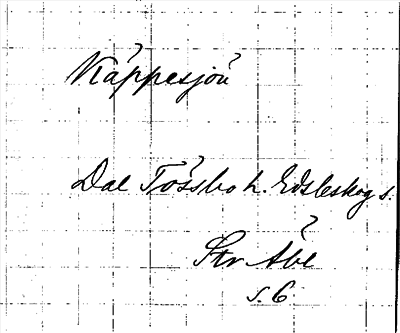 Käppesjön
Dal Tössbo h. Edsleskog s.
Str Åbl
s. 6